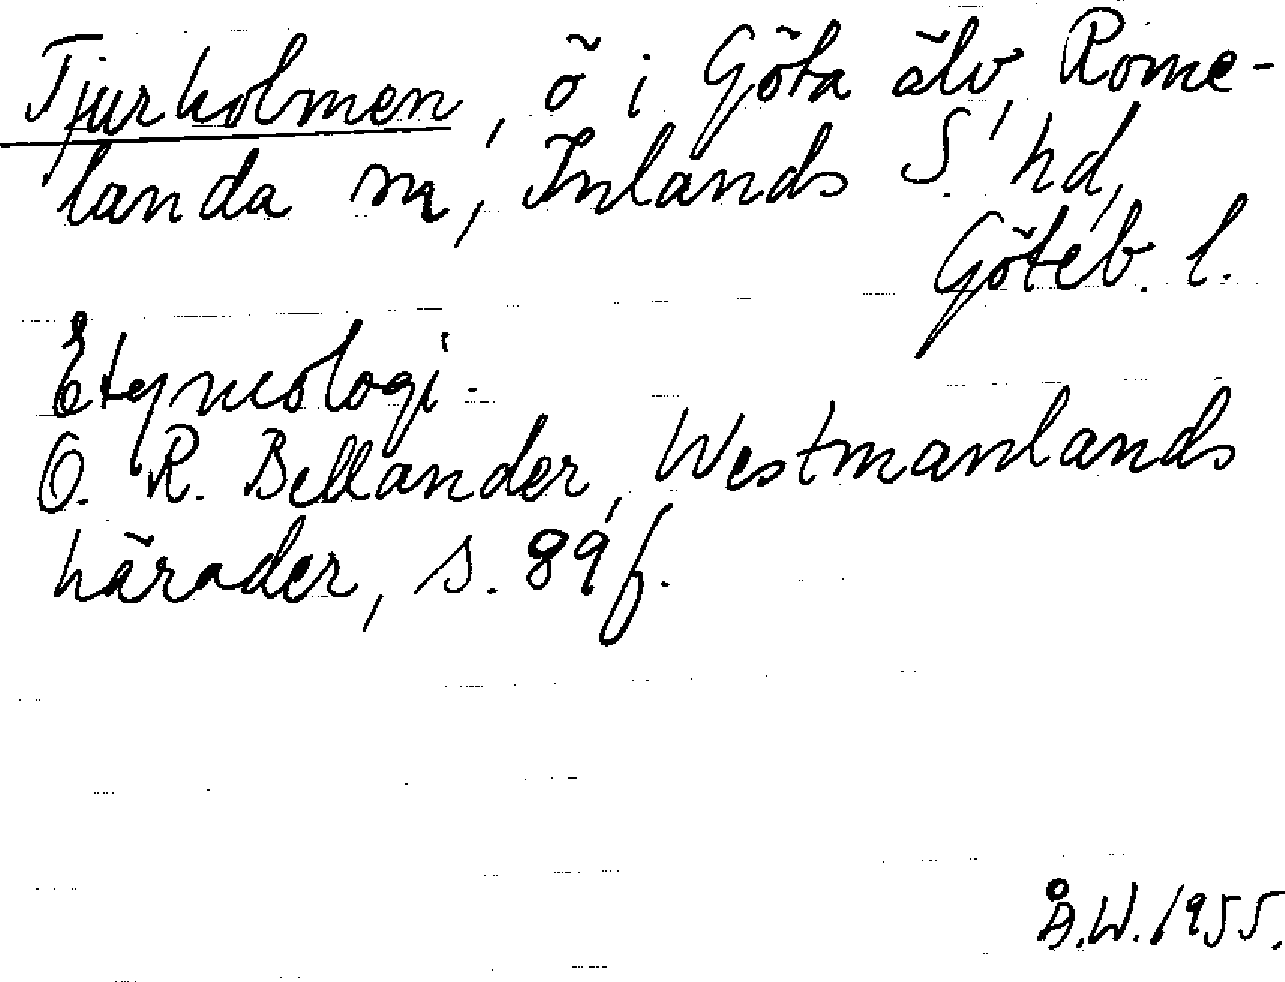 Tjurholmen, ö i Göta älv, Rome-
landa sn, Inlands S. hd,
Göteb. l.
Etymologi.
O. R. Bellander, Westmanlands
härader, s. 89 f.
Å.W. 1955.